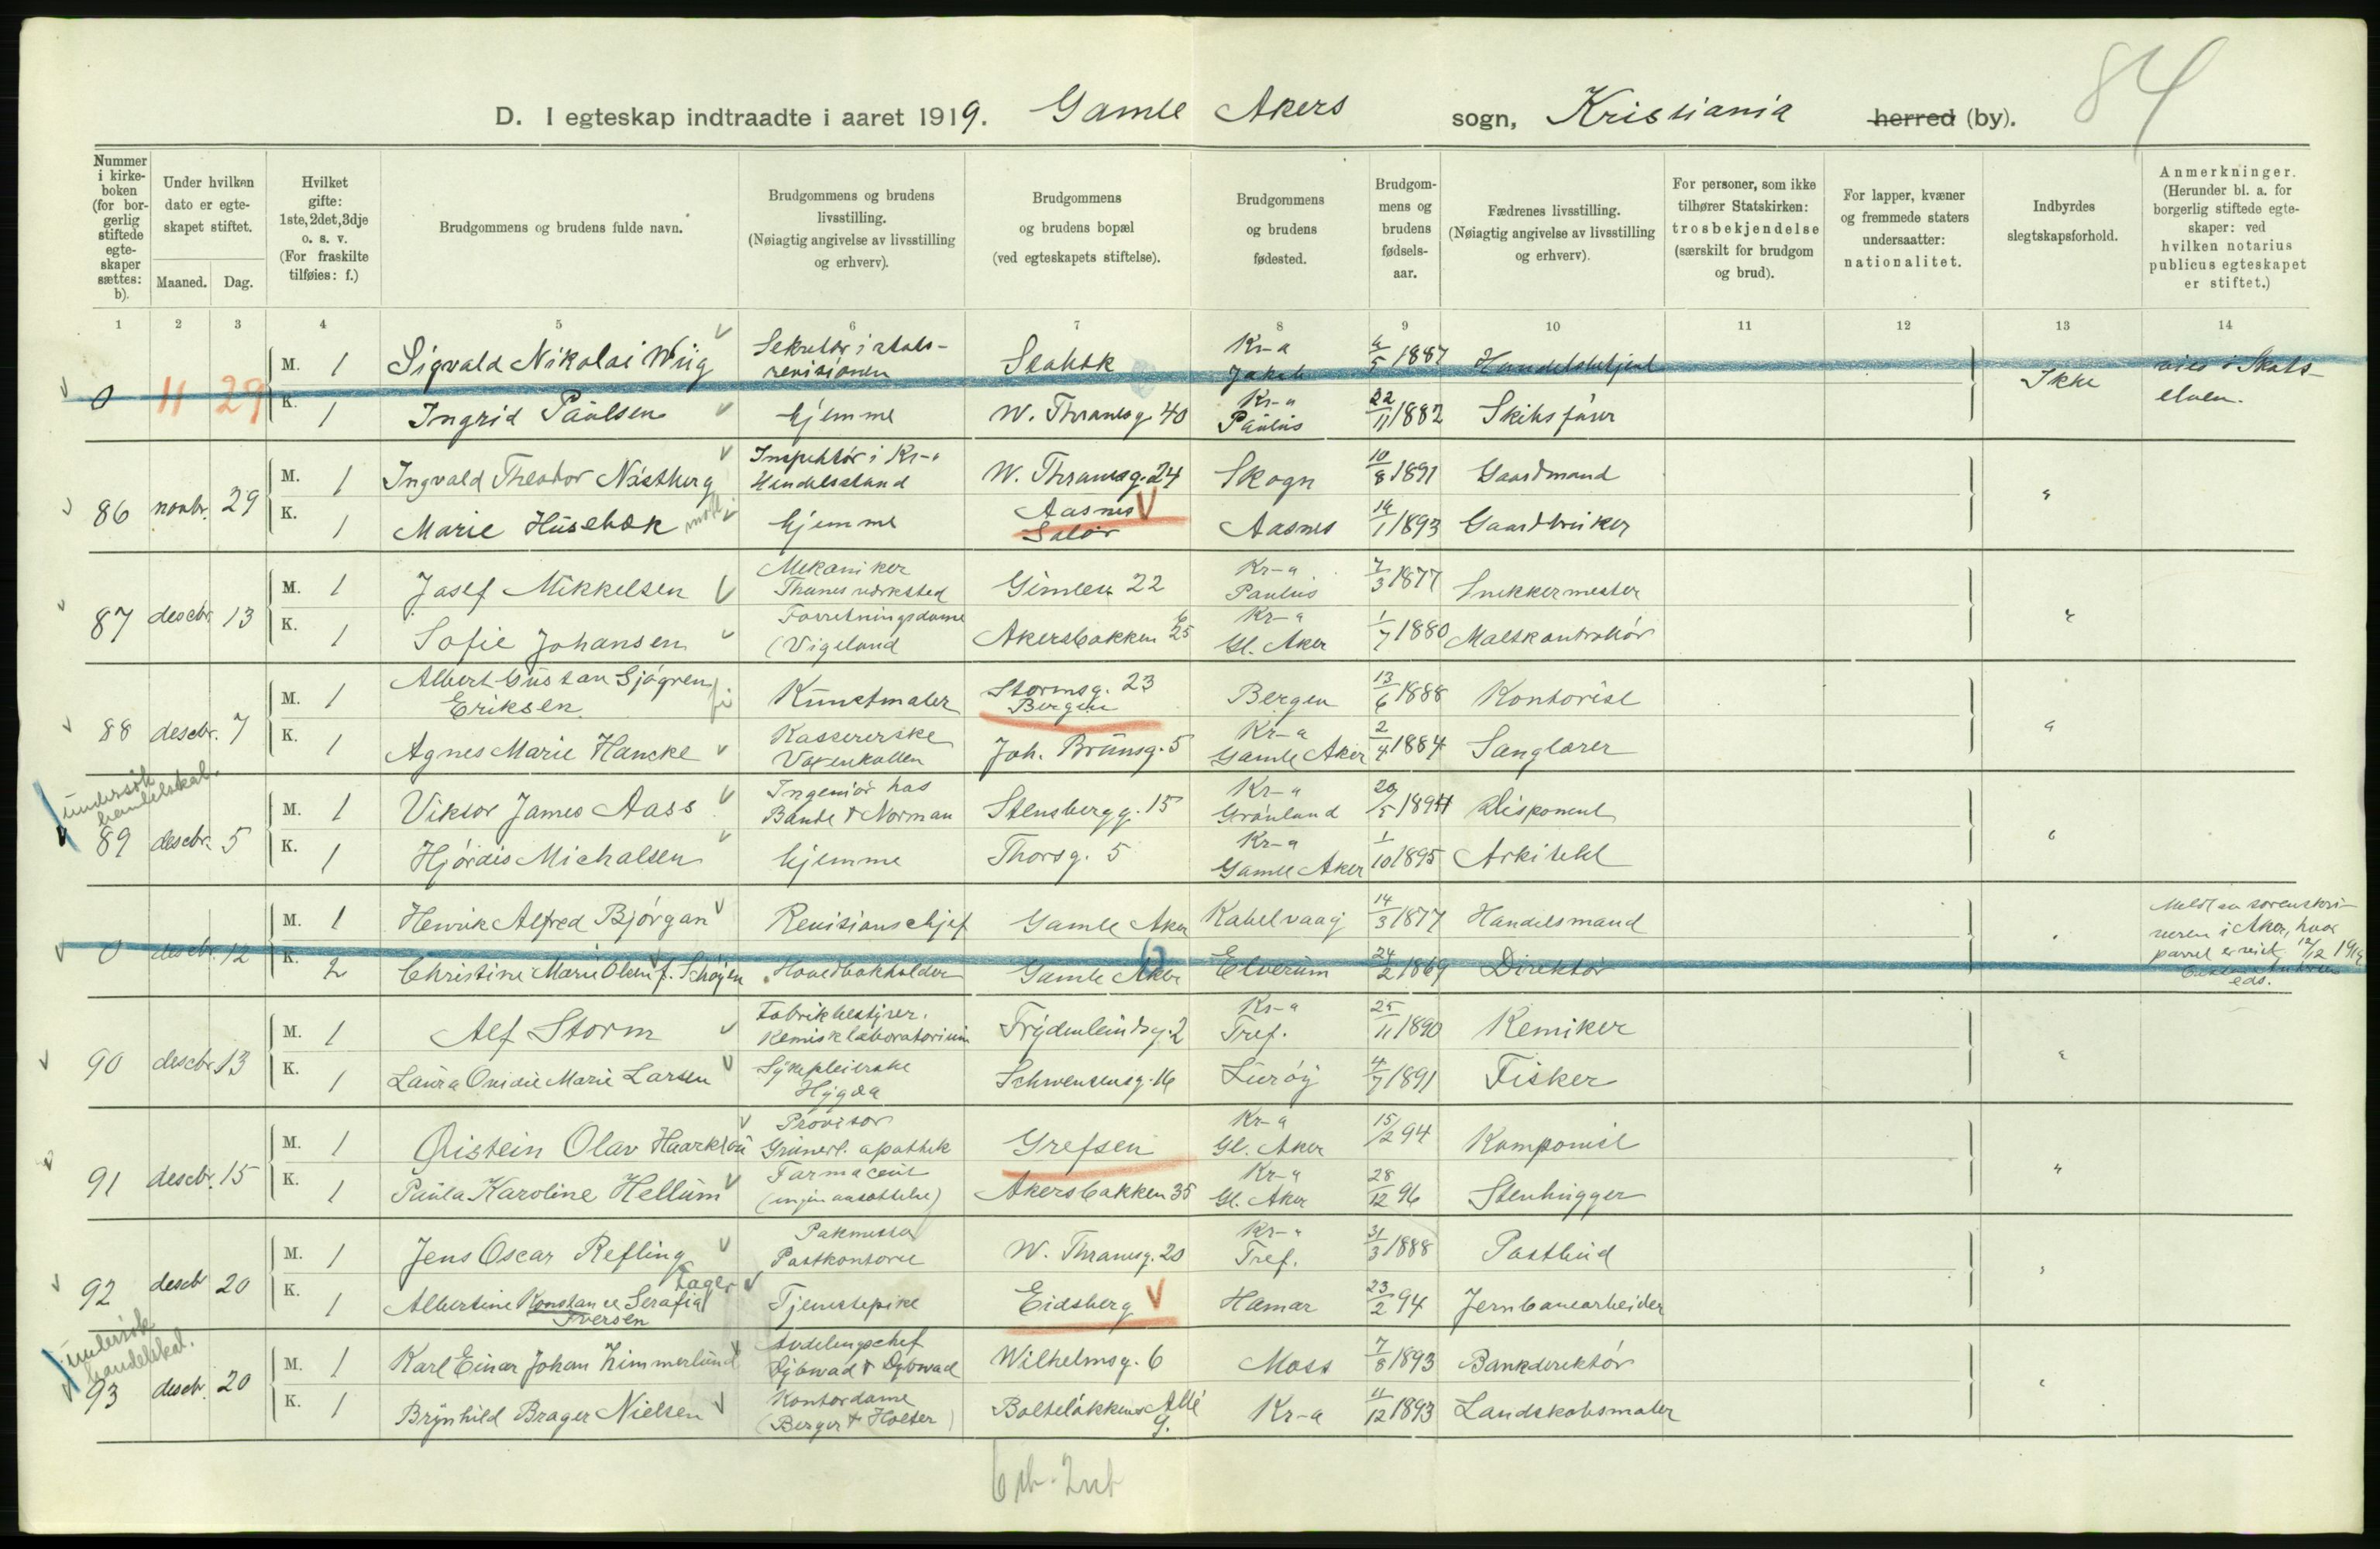 84
D. I egteskap indtraadte i aaret 1919. Gamle Akers sogn, Kristiania herred (by).
Nummer i kirke-boken (for bor-gerlig stiftede egte-skaper sættes: b).
Under hvilken dato er egte-skapet stiftet.
Maaned. Dag.
Hvilket gifte: 1ste, 2det, 3dje o. s. v. (For fraskilte tilføies: f.)
Brudgommens og brudens fulde navn.
Brudgommens og brudens livsstilling. (Nøiagtig angivelse av livsstilling og erhverv).
Brudgommens og brudens bopæl (ved egteskapets stiftelse).
Brudgommens og brudens fødested.
Brudgom-mens og brudens fødsels-aar.
Fædrenes livsstilling. (Nøiagtig angivelse av livsstilling og erhverv).
For personer, som ikke tilhører Statskirken: trosbekjendelse (særskilt for brudgom og brud).
For lapper, kvæner og fremmede staters undersaatter: nationalitet.
Indbyrdes slegtskapsforhold.
Anmerkninger. (Herunder bl. a. for borgerlig stiftede egte-skaper: ved hvilken notarius publicus egteskapet er stiftet.)
1 2 3 4 5 6 7 8 9 10 11 12 13 14
0 11 29 M. 1 Sigvald Nikolai Wiig Sekretær i stats-revisionen Kr-a Jakob 5 1887 Handelsbetjent Ikke
K. 1 Ingrid Paulsen hjemme W. Thranesg. 40 Kr-a Paulus 22/11 1882 Skibsfører
86 novbr. 29 M. 1 Ingvald Theodor Nøstberg Inspektør i Kr-a Handelsstand W. Thranesg. 24 Skogn 10/8 1891 Gaardmand "
K. 1 Marie Husebæk hjemme Aasnes Solør Aasnes 14/1 1893 Gaardbruker
87 descbr. 13 M. 1 Josef Mikkelsen Mekaniker Thunes værksted Gimlen 22 Kr-a Paulus 7/3 1877 Snekkermester "
K. 1 Sofie Johansen Forretningsdame (Vigeland Akersbakken 25 Kr-a Gl. Aker 1/7 1880 Maltkontrollør
88 descbr. 7 M. 1 Albert Gustav Sjøgren Eriksen Kunstmaler Stormsg. 23 Bergen Bergen 13/6 1888 Kontorist "
K. 1 Agnes Marie Hancke Kassererske Voxenkollen Joh. Brunsg. 5 Kr-a Gamle Aker 2/4 1884 Sanglærer
undersøk handelskal.
89 descbr. 5 M. 1 Viktor James Aass Ingeniør hos Bande & Norman Stensbergg. 15 Kr-a Grønland 20/5 1894 Disponent "
K. 1 Hjørdis Michalsen hjemme Thorsg. 5 Kr-a Gamle Aker 1/10 1895 Arkitekt
0 descbr. 12 M. 1 Henrik Alfred Bjørgan Revisionschef Gamle Aker Kabelvaag 14/3 1877 Handelsmand " Meldt sorenskri-veren i Aker, hvor parret er viet 12/12 1919
K. 2 Christine Marie Olsen f. Schøjen Hovedbokholder Gamle Aker Elverum 24/2 1869 Direktør
90 descbr. 13 M. 1 Alf Storm Fabrikbestyrer. Kemisk laboratorium Frydenlundsg. 2 Kr-a Tref. 25/11 1890 Kemiker "
K. 1 Laura Ovidie Marie Larsen Sykepleierske Hygea Schwensensg. 16 Lurøy 4/7 1891 Fisker
91 descbr. 15 M. 1 Øistein Olav Haarklou Provisor Grünerl. apothek Grefsen Kr-a Gl. Aker 15/2 94 Komponist "
K. 1 Paula Karoline Hellum Farmaceut (ingen ansættelse) Akersbakken 35 Kr-a Gl. Aker 28/12 96 Stenhugger
92 descbr 20 M. 1 Jens Oscar Refling Pakmester Postkontoret W. Thranesg. 20 Kr-a Tref. 31/3 1888 Postbud "
K. 1 Albertine Konstance Serafia Fager Iversen Tjenestepike Eidsberg Hamar 23/2 94 Jernbanearbeider
undersøk handelskal.
93 descbr. 20 M. 1 Karl Einar Johan Zimmerlund Avdelingschef Dybwad & Dybwad Wilhelmsg. 6 Moss 7/8 1893 Bankdirektør "
K. 1 Brynhild Brager Nielsen Kontordame (Berger & Holter) Bolteløkkens Allé 9. Kr-a 11/12 1893 Landskabsmaler